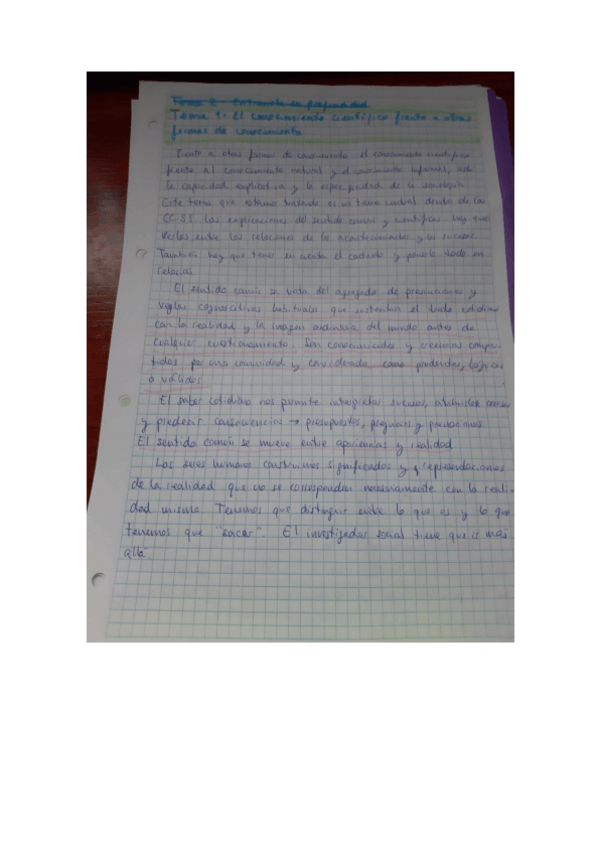 Tema 2 - Entrevista en profundidad
Tema 1: El conocimiento científico frente a otras
formas de conocimiento
Frente a otras formas de conocimiento el conocimiento científico
frente al conocimiento natural y el conocimiento informal,
la capacidad explicativa y la especificidad de la sociología.
Este tema que estamos tratando es un tema central dentro de las
CC.SS. Las explicaciones del sentido común y científicas hay que
verlas entre las relaciones de los acontecimientos y los sucesos.
También hay que tener en cuenta el contexto y ponerlo todo en
relación.
El sentido común se trata del agregado de presunciones y
reglas cognoscitivas habituales que sustentan el trato cotidiano
con la realidad y la imagen ordinaria del mundo antes de
cualquier cuestionamiento. Son conocimientos y creencias compar-
tidos por una comunidad y considerada como prudentes, lógicos
o válidos.
El saber cotidiano nos permite interpretar sucesos, atribuirles causas
y predecir consecuencias → presupuestos, prejuicios y predicciones.
El sentido común se mueve entre apariencias y realidad
Los seres humanos construimos significados y representaciones
de la realidad que no se corresponden necesariamente con la reali-
dad misma. Tenemos que distinguir entre lo que es y lo que
tenemos que "sacar". El investigador social tiene que ir más
allá.